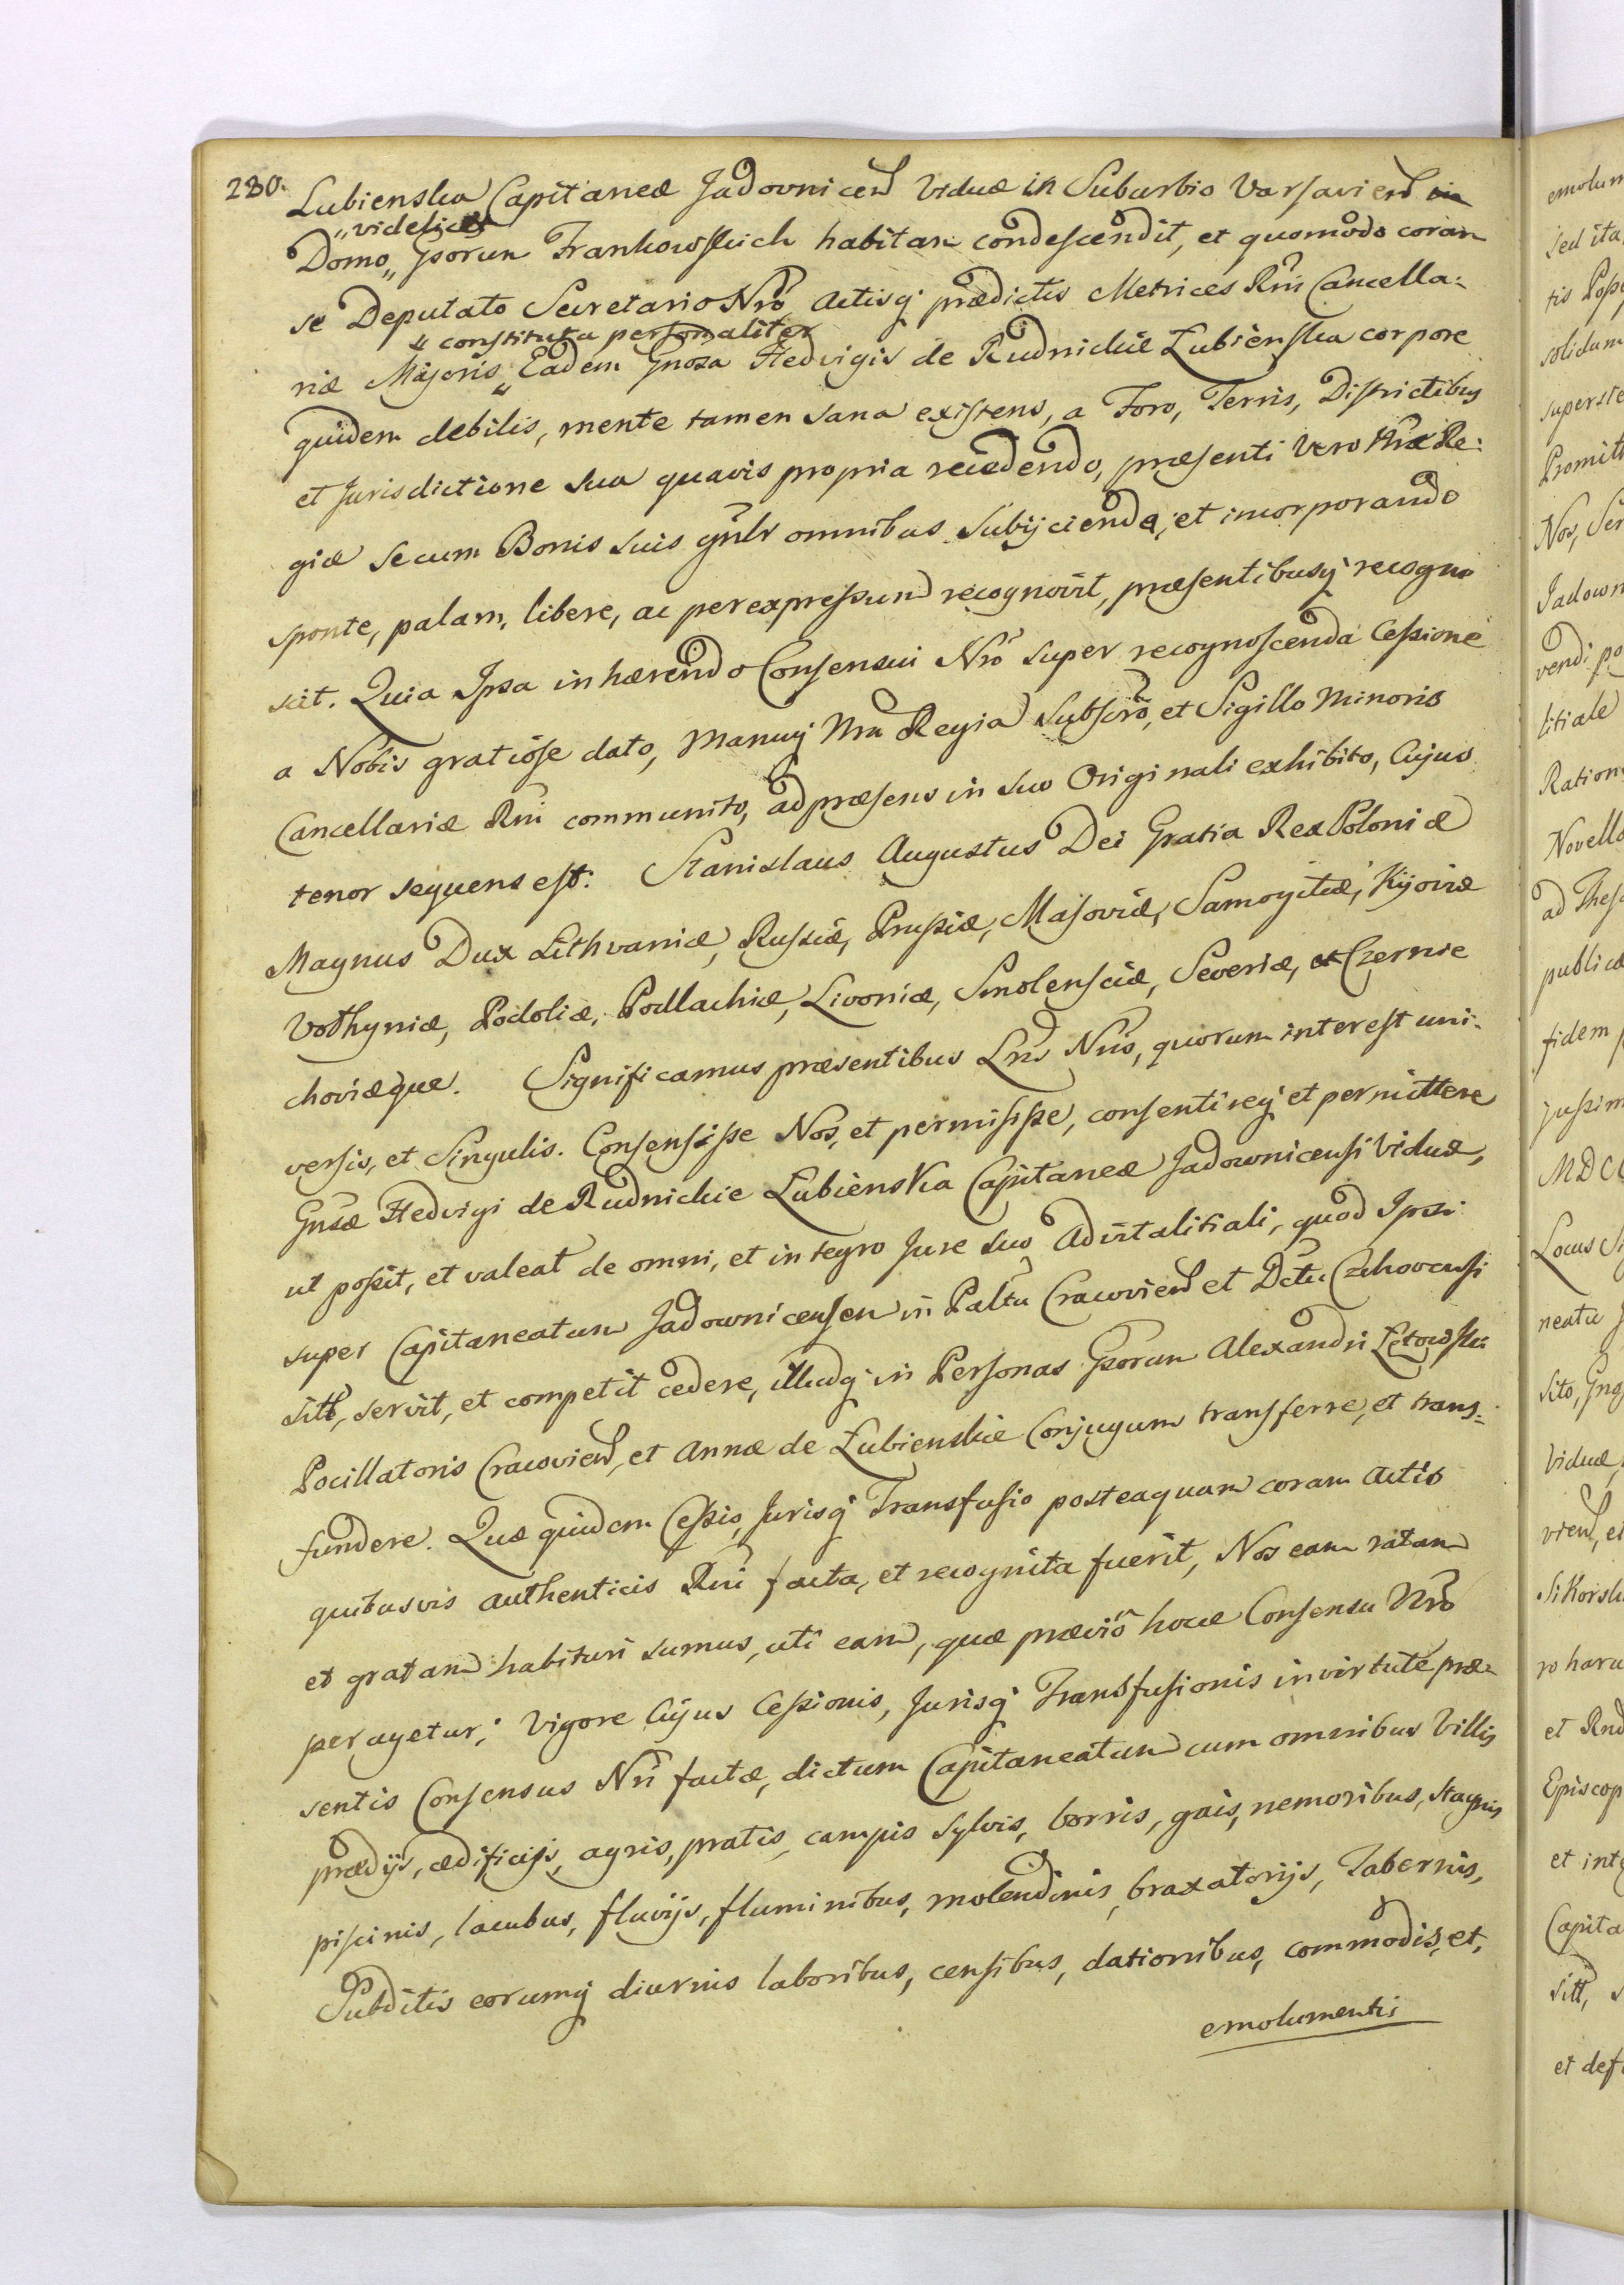 280. Lubienska Capitaneæ Jadovnicen Viduæ in Suburbio Varsavien in
"videlicet
Domo " Gsorum Frankowskich habitan condescendit, et quomodo coram
se Deputato Secretario Nro Actisq prædictis Metrices Rni Cancella:
" constituta personaliter
riæ Majoris " Eadem Gnosa Hedvigis de Rudnickie Lubienska corpore
quidem debilis, mente tamen sana existens, a Foro, Terris, Districtibus
et Jurisdictione sua quavis propria recedendo, præsenti vero Nræ Re:
giæ se cum Bonis suis gnlr omnibus subijciendo, et incorporando
sponte, palam, libere, ac per expressum recognovit, præsentibusq recogno
scit. Quia Ipsa inhærendo Consensui Nro super recognoscenda Cessione
a Nobis gratiose dato, Manuq Nra Regia Subscro, et Sigillo Minoris
Cancellariæ Rni communito, ad præsens in suo Originali exhibito, Cujus
tenor sequens est. Stanislaus Augustus Dei Gratia Rex Poloniæ
Magnus Dux Lithvaniæ, Russiæ, Prussiæ, Masoviæ, Samogitiæ, Kijoviæ
Volhyniæ, Podoliæ, Podlachiæ, Livoniæ, Smolensciæ, Severiæ, et Czernie
choviæque. Significamus præsentibus Lris Nris, quorum interest uni:
versis, et Singulis. Consensisse Nos, et permisisse, consentireq et permittere
Gnsæ Hedvigi de Rudnickie Lubienska Capitaneæ Jadownicensi Viduæ,
ut possit, et valeat de omni, et integro Jure suo Advitalitiali, quod Ipsi
super Capitaneatum Jadownicensem in Paltu Cracovien et Dctu Czchovensi
sitt, servit, et competit cedere, illudq in Personas Gsorum Alexandri Łętowski
Pocillatoris Cracovien, et Annæ de Lubienskie Conjugum transferre, et trans:
fundere. Quæ quidem Cessio, Jurisq Transfusio posteaquam coram Actis
quibusvis authenticis Rni facta, et recognita fuerit, Nos eam ratam
et gratam habituri sumus, uti eam, quæ prævio hocce Consensu Nro
peragetur; Vigore Cujus Cessionis, Jurisq Transfusionis in virtute præ:
sentis Consensus Nri factæ, dictum Capitaneatum cum omnibus Villis
prædijs, ædificijs, agris, pratis, campis sylvis, borris, gais, nemoribus, stagnis
piscinis, lacubus, fluvijs, fluminibus, molendinis, braxatorijs, Tabernis,
Subditis eorumq diurnis laboribus, censibus, dationibus, commodis, et,
emolumentis